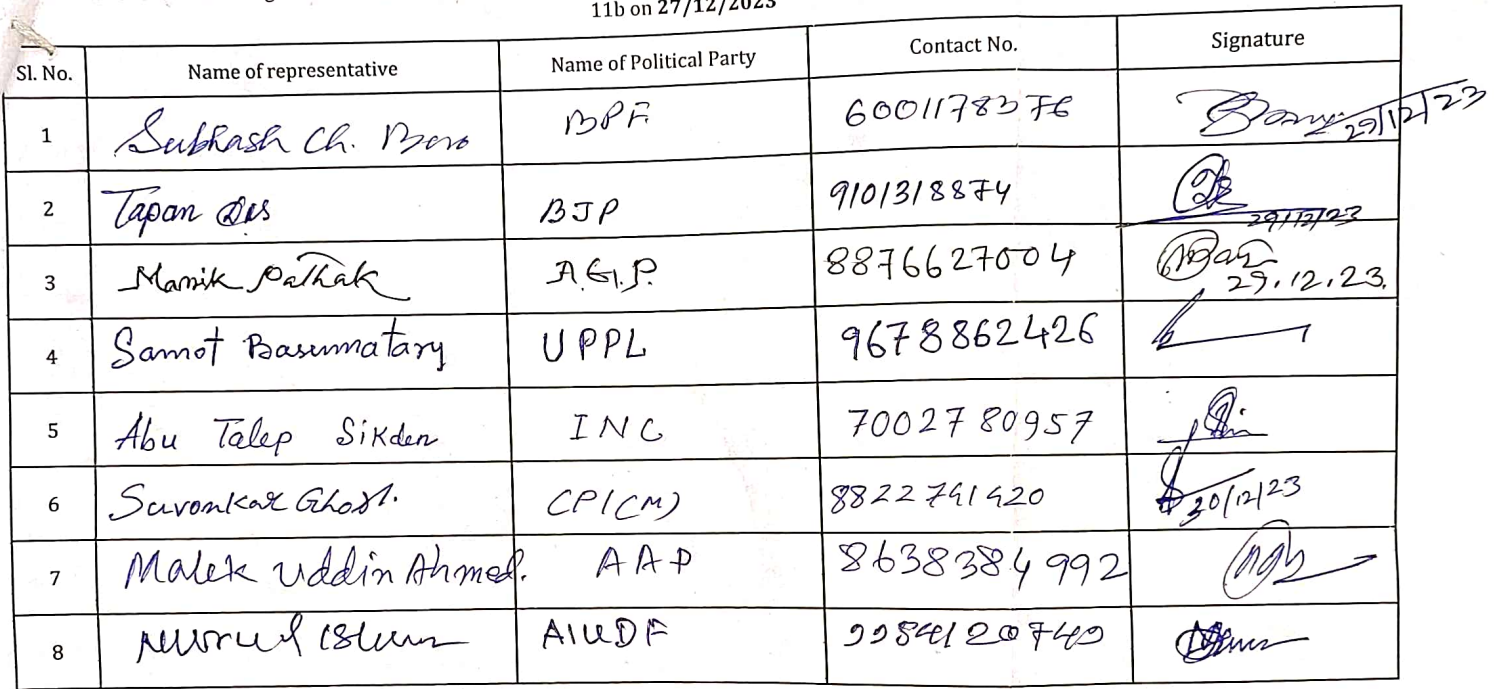 11b on 27/12/2023
Sl. No. Name of representative Name of Political Party Contact No. Signature
1 Subhash Ch. Boro BPF 6001178376 29/12/23
2 Tapan Das BJP 9101318874 29/12/23
3 Manik Pathak A.G.P. 8876627004 29.12.23.
4 Samot Basumatary UPPL 9678862426
5 Abu Talep Sikder INC 7002780957
6 Suvonkar Ghosh. CPI(M) 8822741420 30/12/23
7 Malek Uddin Ahmed. AAP 8638384992
8 Nurul Islam AIUDF 9984120740